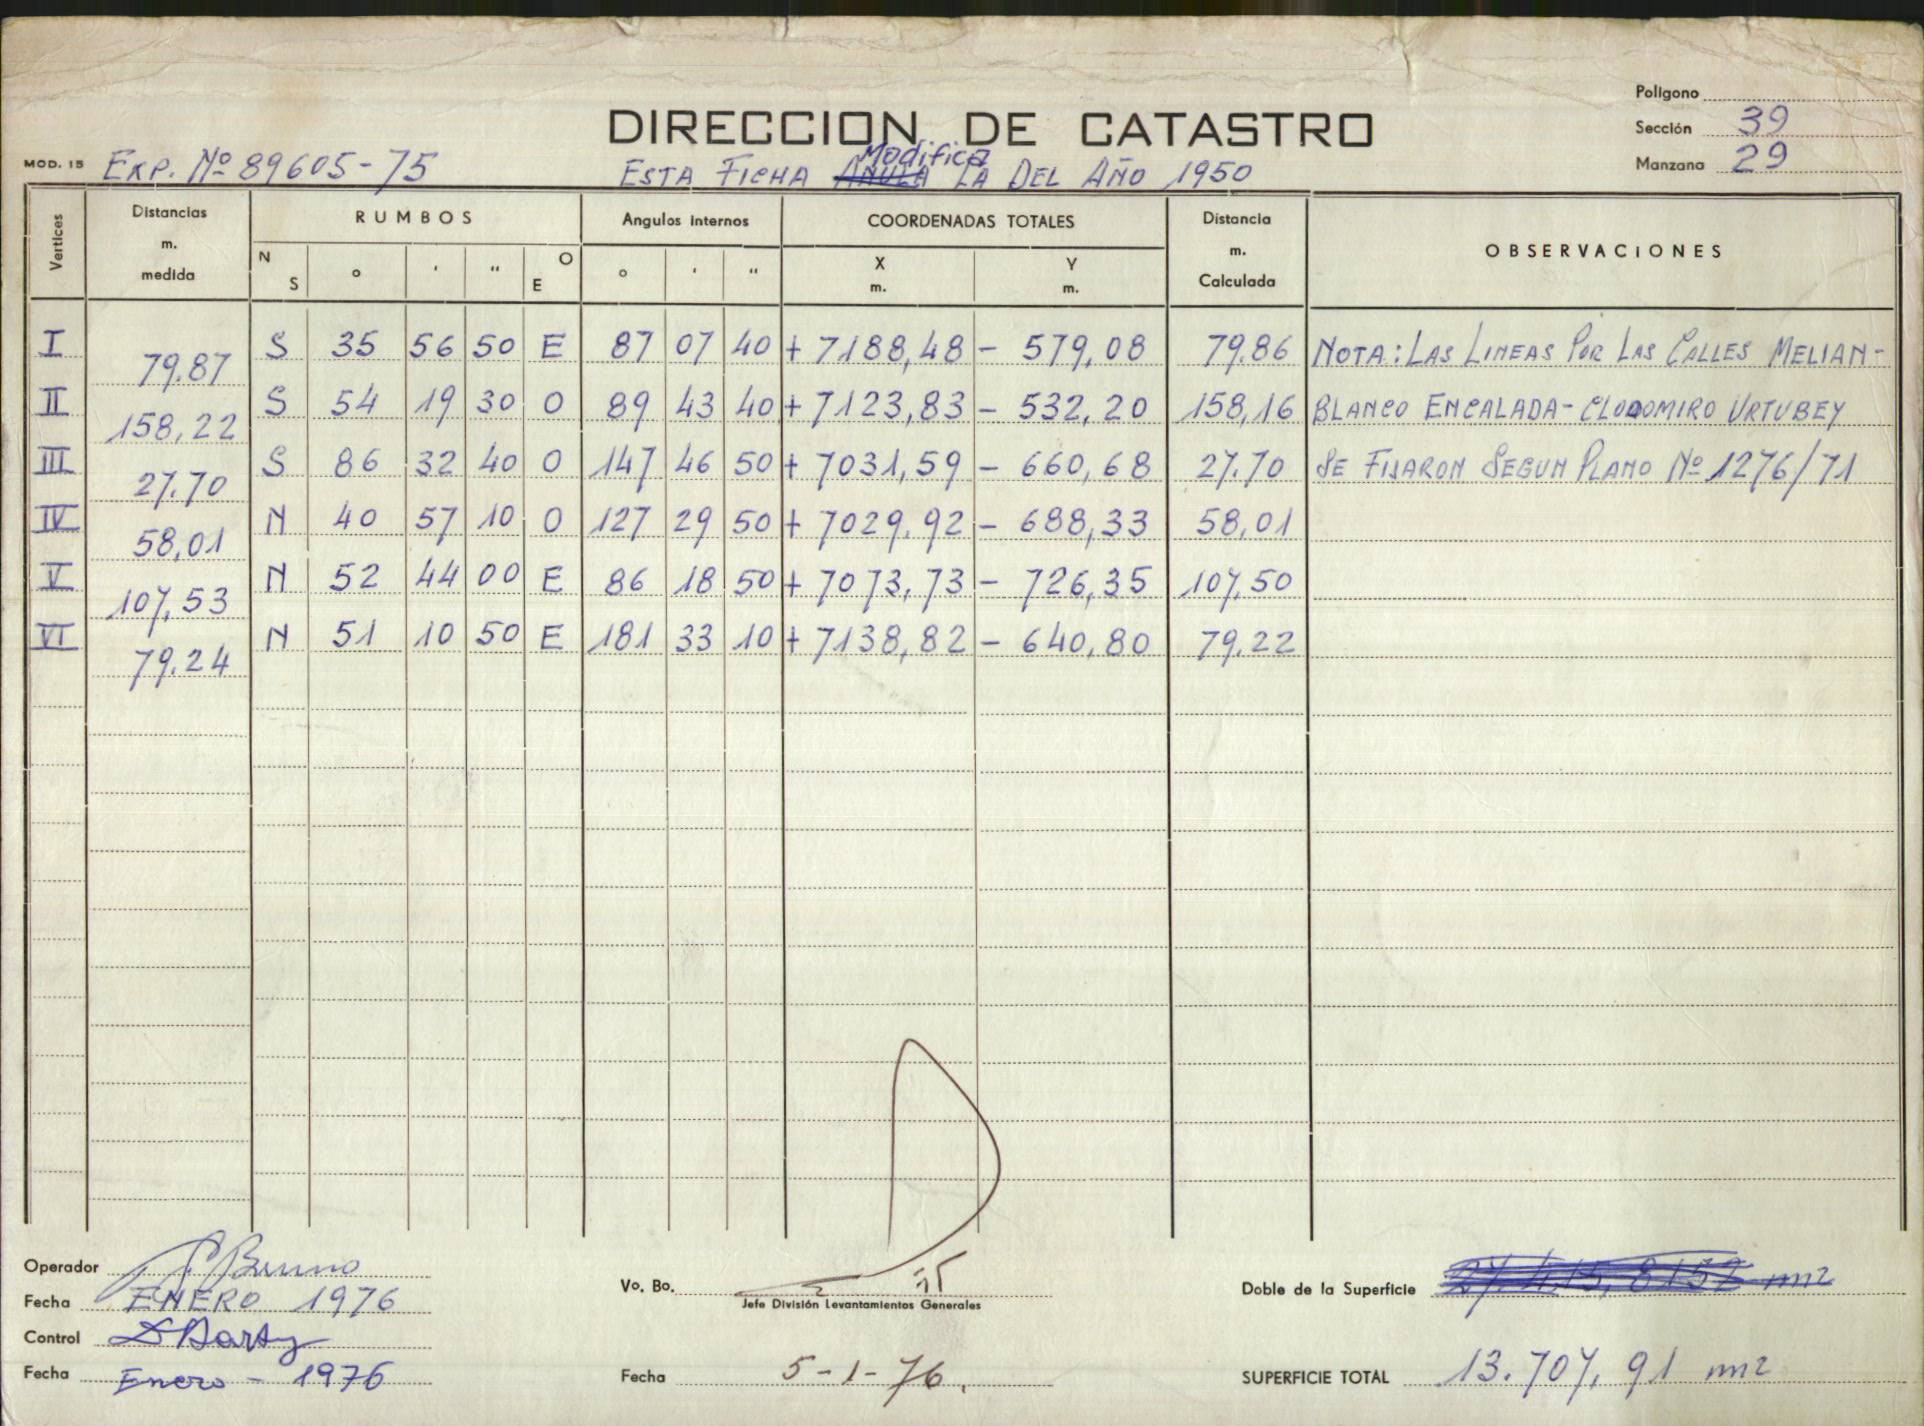 Polígono
DIRECCION DE CATASTRO
Sección 39
MOD. 15 EXP. Nº 89605-75
Modifica
ESTA FICHA ANULA LA DEL AÑO 1950
Manzana 29
Vertices Distancias m. medida RUMBOS N S ° ' " O E Angulos internos ° ' " COORDENADAS TOTALES X m. Y m. Distancia m. Calculada OBSERVACIONES
I 79.87 S 35 56 50 E 87 07 40 + 7188,48 - 579,08 79,86 NOTA: LAS LINEAS POR LAS CALLES MELIAN-
II 158,22 S 54 19 30 O 89 43 40 + 7123,83 - 532,20 158,16 BLANCO ENCALADA - CLODOMIRO URTUBEY
III 27.70 S 86 32 40 O 147 46 50 + 7031,59 - 660,68 27.70 SE FIJARON SEGUN PLANO Nº 1276/71
IV 58,01 N 40 57 10 O 127 29 50 + 7029,92 - 688,33 58,01
V 107,53 N 52 44 00 E 86 18 50 + 7073,73 - 726,35 107,50
VI 79.24 N 51 10 50 E 181 33 10 + 7138,82 - 640,80 79,22
Operador Bruno
Fecha ENERO 1976
Control
Fecha Enero - 1976
Vo. Bo.
Jefe División Levantamientos Generales
Fecha 5-1-76.
Doble de la Superficie m2
SUPERFICIE TOTAL 13.707,91 m2